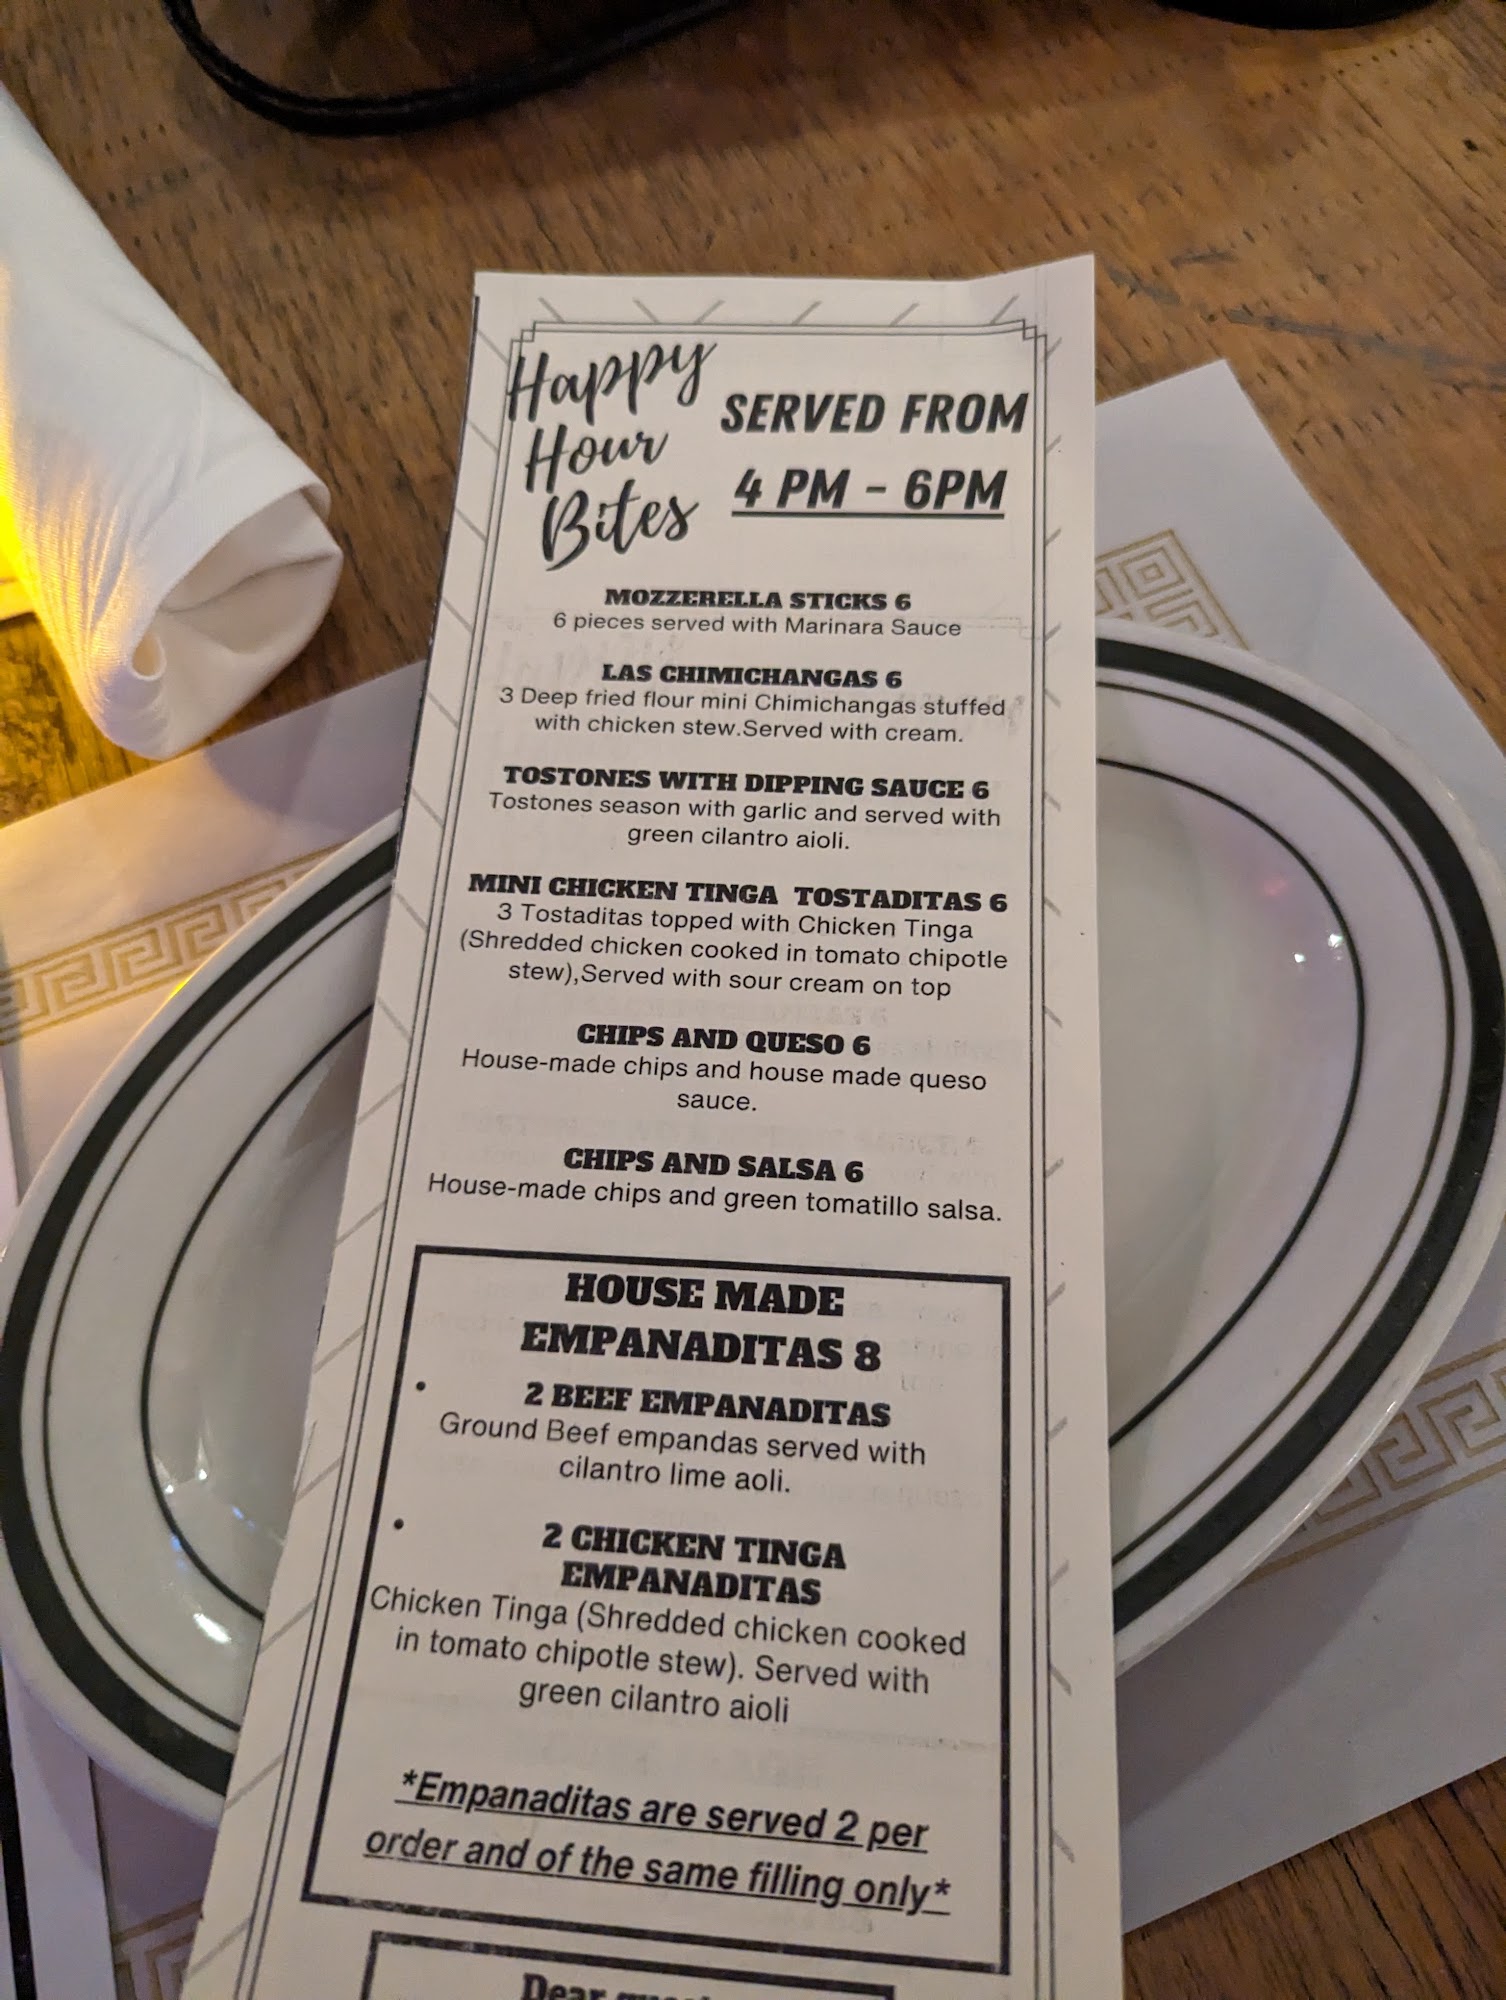 Happy
Hour
Bites
SERVED FROM
4 PM - 6PM
MOZZERELLA STICKS 6
6 pieces served with Marinara Sauce
LAS CHIMICHANGAS 6
3 Deep fried flour mini Chimichangas stuffed
with chicken stew.Served with cream.
TOSTONES WITH DIPPING SAUCE 6
Tostones season with garlic and served with
green cilantro aioli.
MINI CHICKEN TINGA TOSTADITAS 6
3 Tostaditas topped with Chicken Tinga
(Shredded chicken cooked in tomato chipotle
stew),Served with sour cream on top
CHIPS AND QUESO 6
House-made chips and house made queso
sauce.
CHIPS AND SALSA 6
House-made chips and green tomatillo salsa.
HOUSE MADE
EMPANADITAS 8
• 2 BEEF EMPANADITAS
Ground Beef empandas served with
cilantro lime aoli.
• 2 CHICKEN TINGA
EMPANADITAS
Chicken Tinga (Shredded chicken cooked
in tomato chipotle stew). Served with
green cilantro aioli
*Empanaditas are served 2 per
order and of the same filling only*
Dear